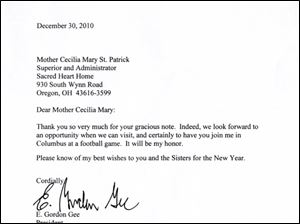 December 30, 2010
Mother Cecilia Mary St. Patrick
Superior and Administrator
Sacred Heart Home
930 South Wynn Road
Oregon, OH  43616-3599
Dear Mother Cecilia Mary:
Thank you so very much for your gracious note.  Indeed, we look forward to
an opportunity when we can visit, and certainly to have you join me in
Columbus at a football game.  It will be my honor.
Please know of my best wishes to you and the Sisters for the New Year.
Cordially,
E. Gordon Gee
E. Gordon Gee
President